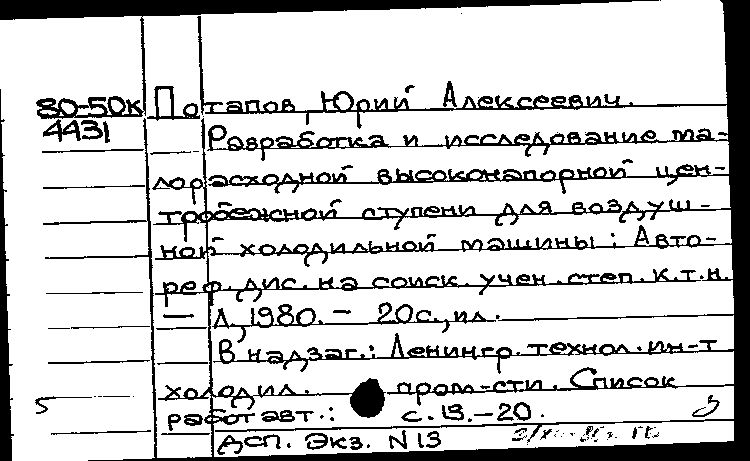 80-50к Потапов, Юрий Алексеевич.
4431 Разработка и исследование ма-
лорасходной высоконапорной цен-
тробежной ступени для воздуш-
ной холодильной машины: Авто-
реф. дис. на соиск. учен. степ. к.т.н.
— Л., 1980. - 20с., ил.
В надзаг.: Ленингр. технол. ин-т
холодил. пром-сти. Список
работ авт.: с. 19.-20.
ДСП. Экз. N 13